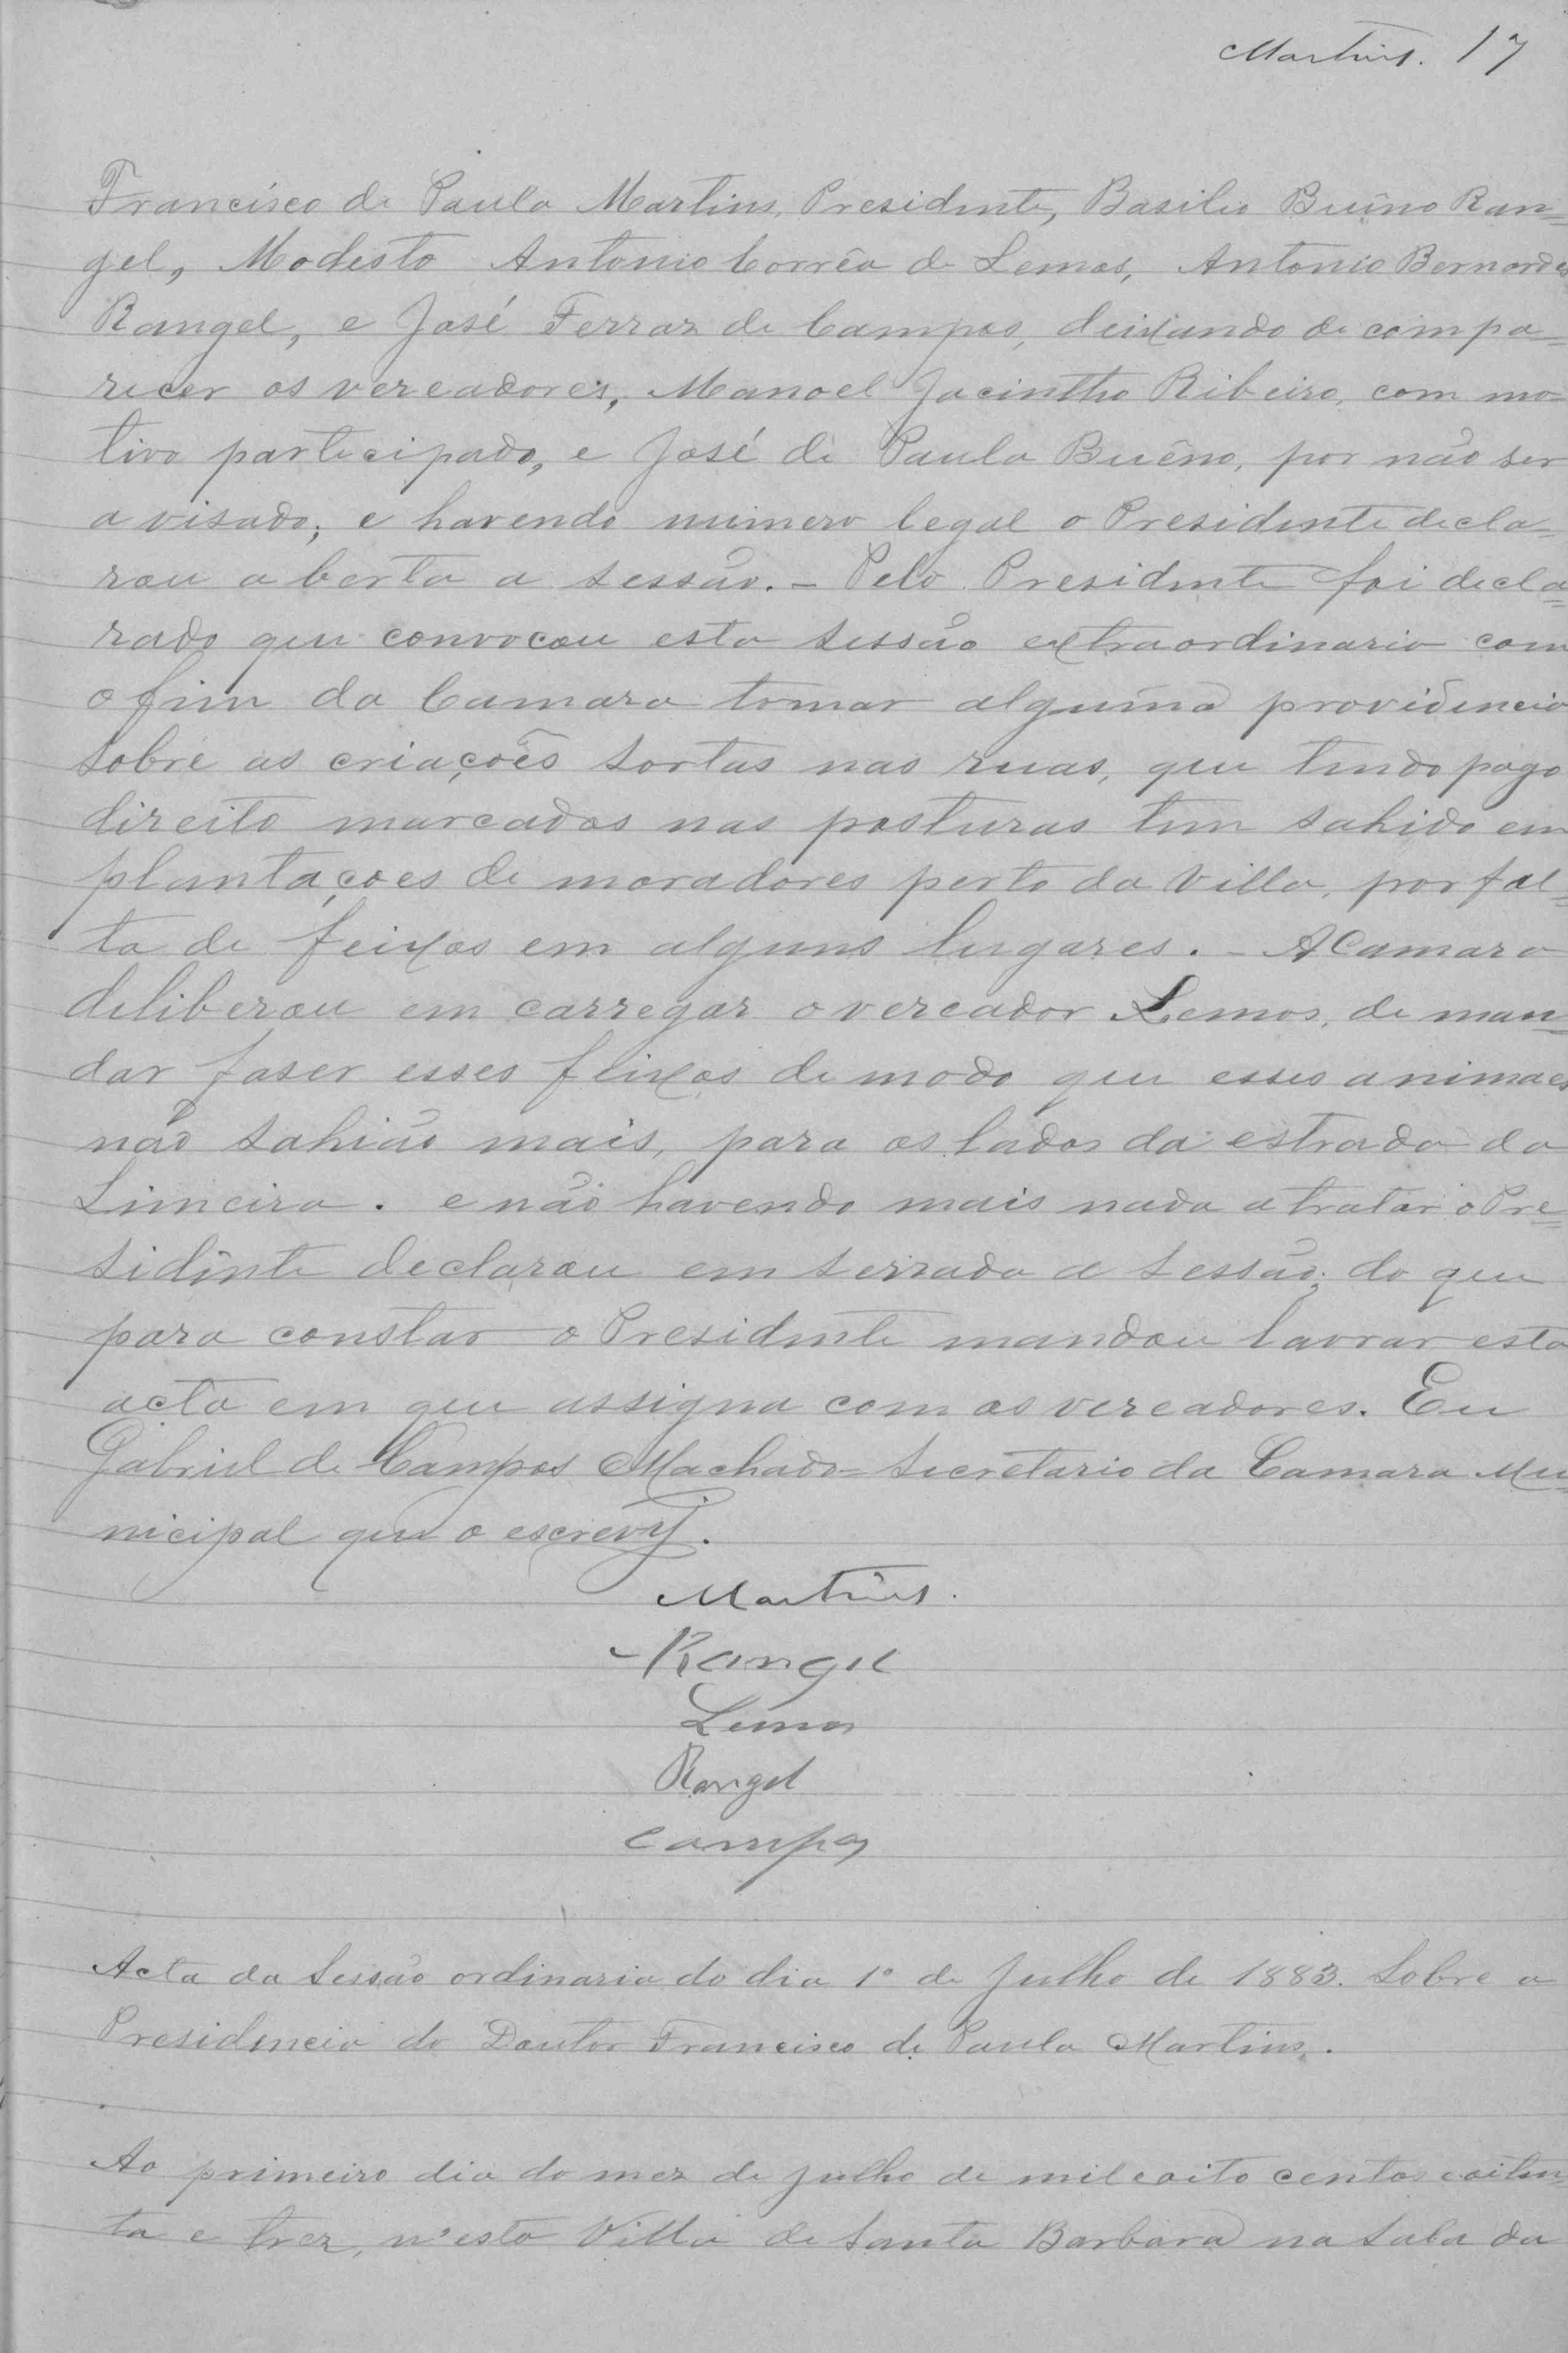 Martins. 17
Francisco de Paula Martins, Presidente, Basilio Buêno Ran=
gel, Modesto Antonio Corrêa de Lemos, Antonio Bernardes
Rangel, e José Ferraz de Campos, deixando de compa=
recer os vereadores, Manoel Jacintho Ribeiro, com mo=
tivo participado, e José de Paula Buêno, por não ser
avisado; e havendo numero legal o Presidente decla=
rou aberta a sessão. - Pelo Presidente foi decla=
rado que convocou esta sessão extraordinaria com
o fim da Camara tomar alguma providencia
sobre as criações sortas nas ruas, que tendo pago
direito marcados nas posturas tem sahido em
plantações de moradores perto da Villa, por fal=
ta de feixos em alguns lugares. - A Camara
deliberou em carregar o vereador Lemos, de man=
dar faser esses feixos de modo que esses animaes
não sahião mais, para os lados da estrada da
Limeira. e não havendo mais nada a tratar o Pre=
sidente declarou em serrada a sessão; do que
para constar o Presidente mandou lavrar esta
acta em que assigna com os vereadores. Eu
Gabriel de Campos Machado= Secretario da Camara Mu=
nicipal que o escrevy.
Martins.
Rangel
Lemos
Rangel
Campos
Acta da Sessão ordinaria do dia 1º de Julho de 1883. Sobre a
Presidencia do Doutor Francisco de Paula Martins.
Ao primeiro dia do mez de Julho de mil e oito centos e oiten=
ta e trez, n'esta Villa de Santa Barbara na Sala da